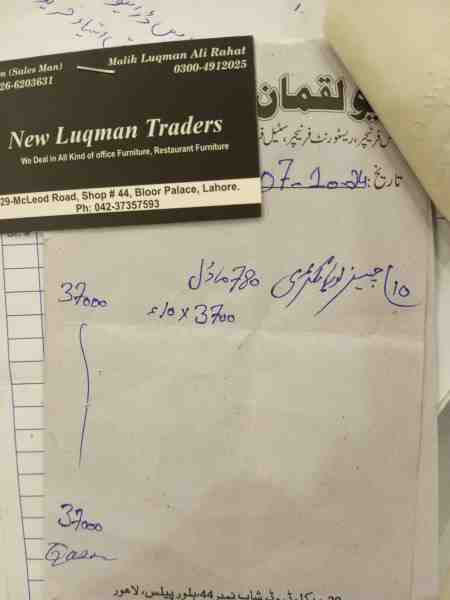 n (Sales Man)
26-6203631
Malik Luqman Ali Rahat
0300-4912025
New Luqman Traders
We Deal in All Kind of office Furniture, Restaurant Furniture
29-McLeod Road, Shop # 44, Bloor Palace, Lahore.
Ph: 042-37357593
یو لقمان
س فرنیچر، ریسٹورنٹ فرنیچر، سٹیل ف
تاریخ: 07-10-24
10) چیئرز لوہا لکڑی 780 ماڈل
37000
3700 × 10
37000
29 میکلوڈ روڈ، شاپ نمبر 44، بلور پیلس، لاہور